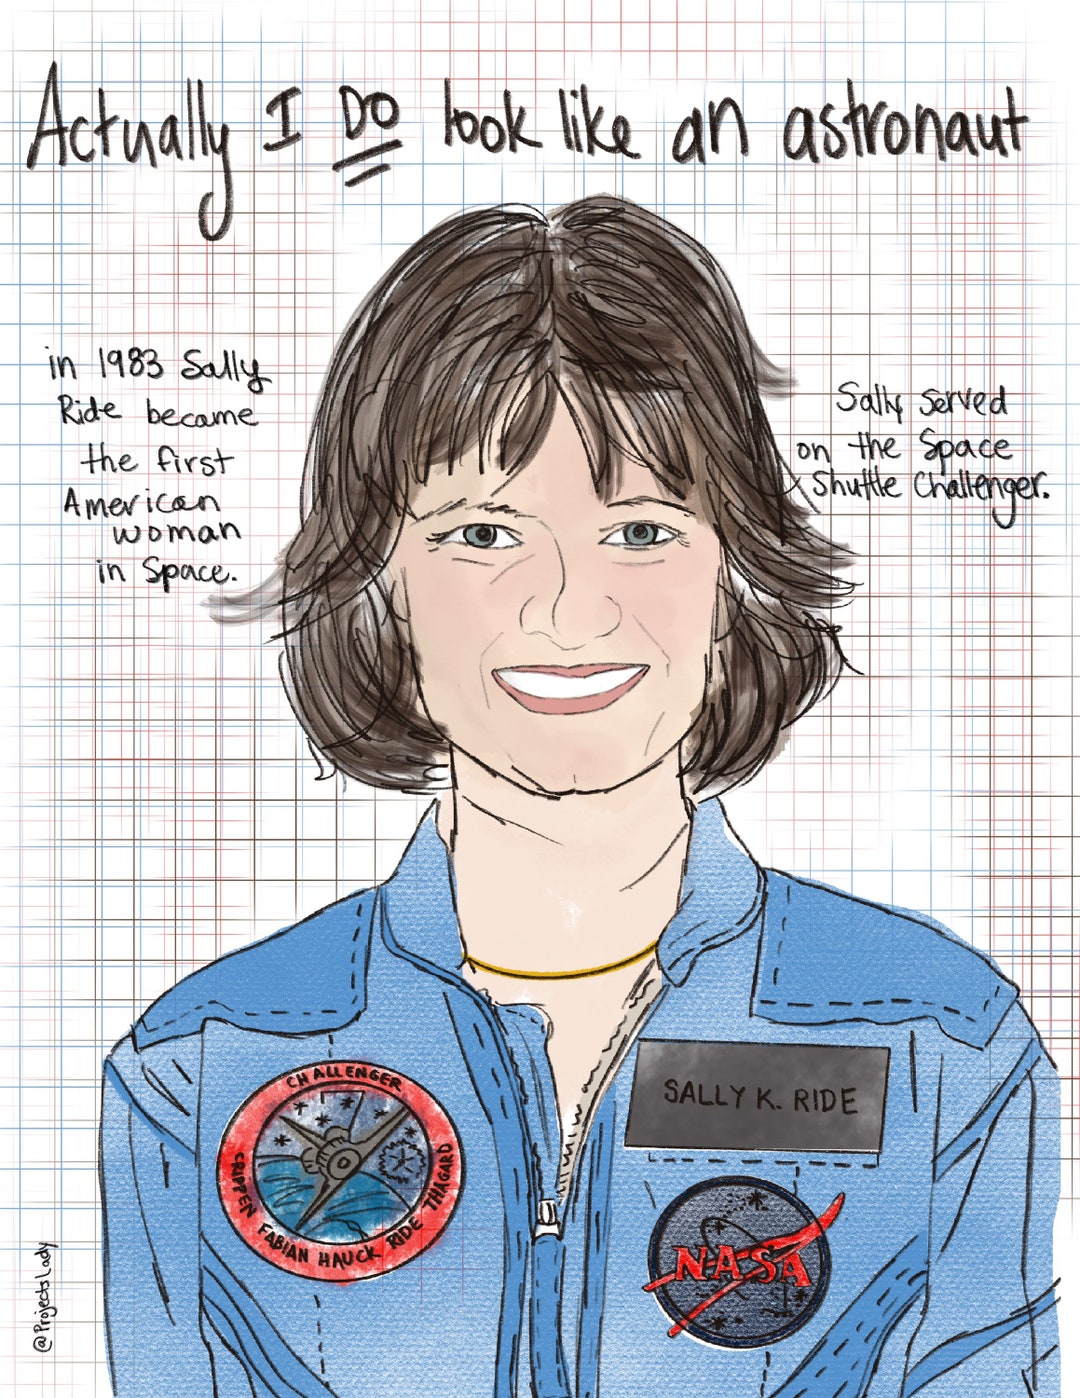 Actually I DO look like an astronaut
in 1983 Sally
Ride became
the first
American
woman
in Space.
Sally served
on the Space
Shuttle Challenger.
CHALLENGER
CRIPPEN FABIAN HAUCK RIDE THAGARD
SALLY K. RIDE
NASA
@ProjectsLady